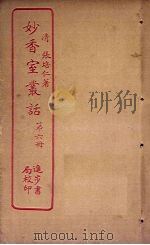 清 張培仁著
妙香室叢話 第六冊
進步書
局校印